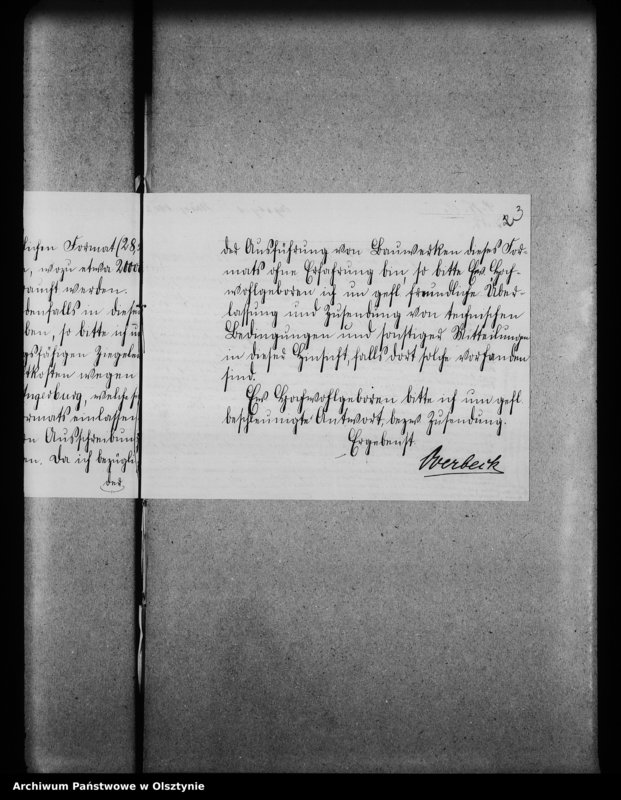 lichen Format (28,
, wozu etwa 20000
raucht werden.
benfalls in dieser
ben, so bitte ich u
gsfähigen Ziegelei
tkosten wegen
ngerburg, welche s
ormats einlassen
en Ausschreibung
en. Da ich bezügli
der
3
2
der Ausführung von Bauwerken dieses For-
mats ohne Erfahrung bin so bitte Ew. Hoch-
wohlgeboren ich um gefl. freundliche Über-
lassung und Zusendung von technischen
Bedingungen und sonstiger Mitteilungen
in dieser Hinsicht, falls dort solche vorhanden
sind.
Ew Hochwohlgeboren bitte ich um gefl.
beschleunigte Antwort, bezw Zusendung.
Ergebenst
Overbeck
Archiwum Państwowe w Olsztynie